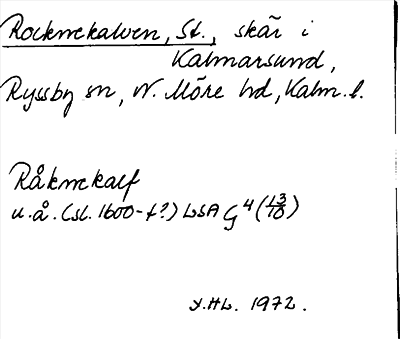 Rocknekalven, St., skär i
Kalmarsund,
Ryssby sn, N. Möre hd, Kalm. l.
Råknekalf
u.å. (sl. 1600-t?) LSA G 4 (13/10)
Y.HL. 1972.